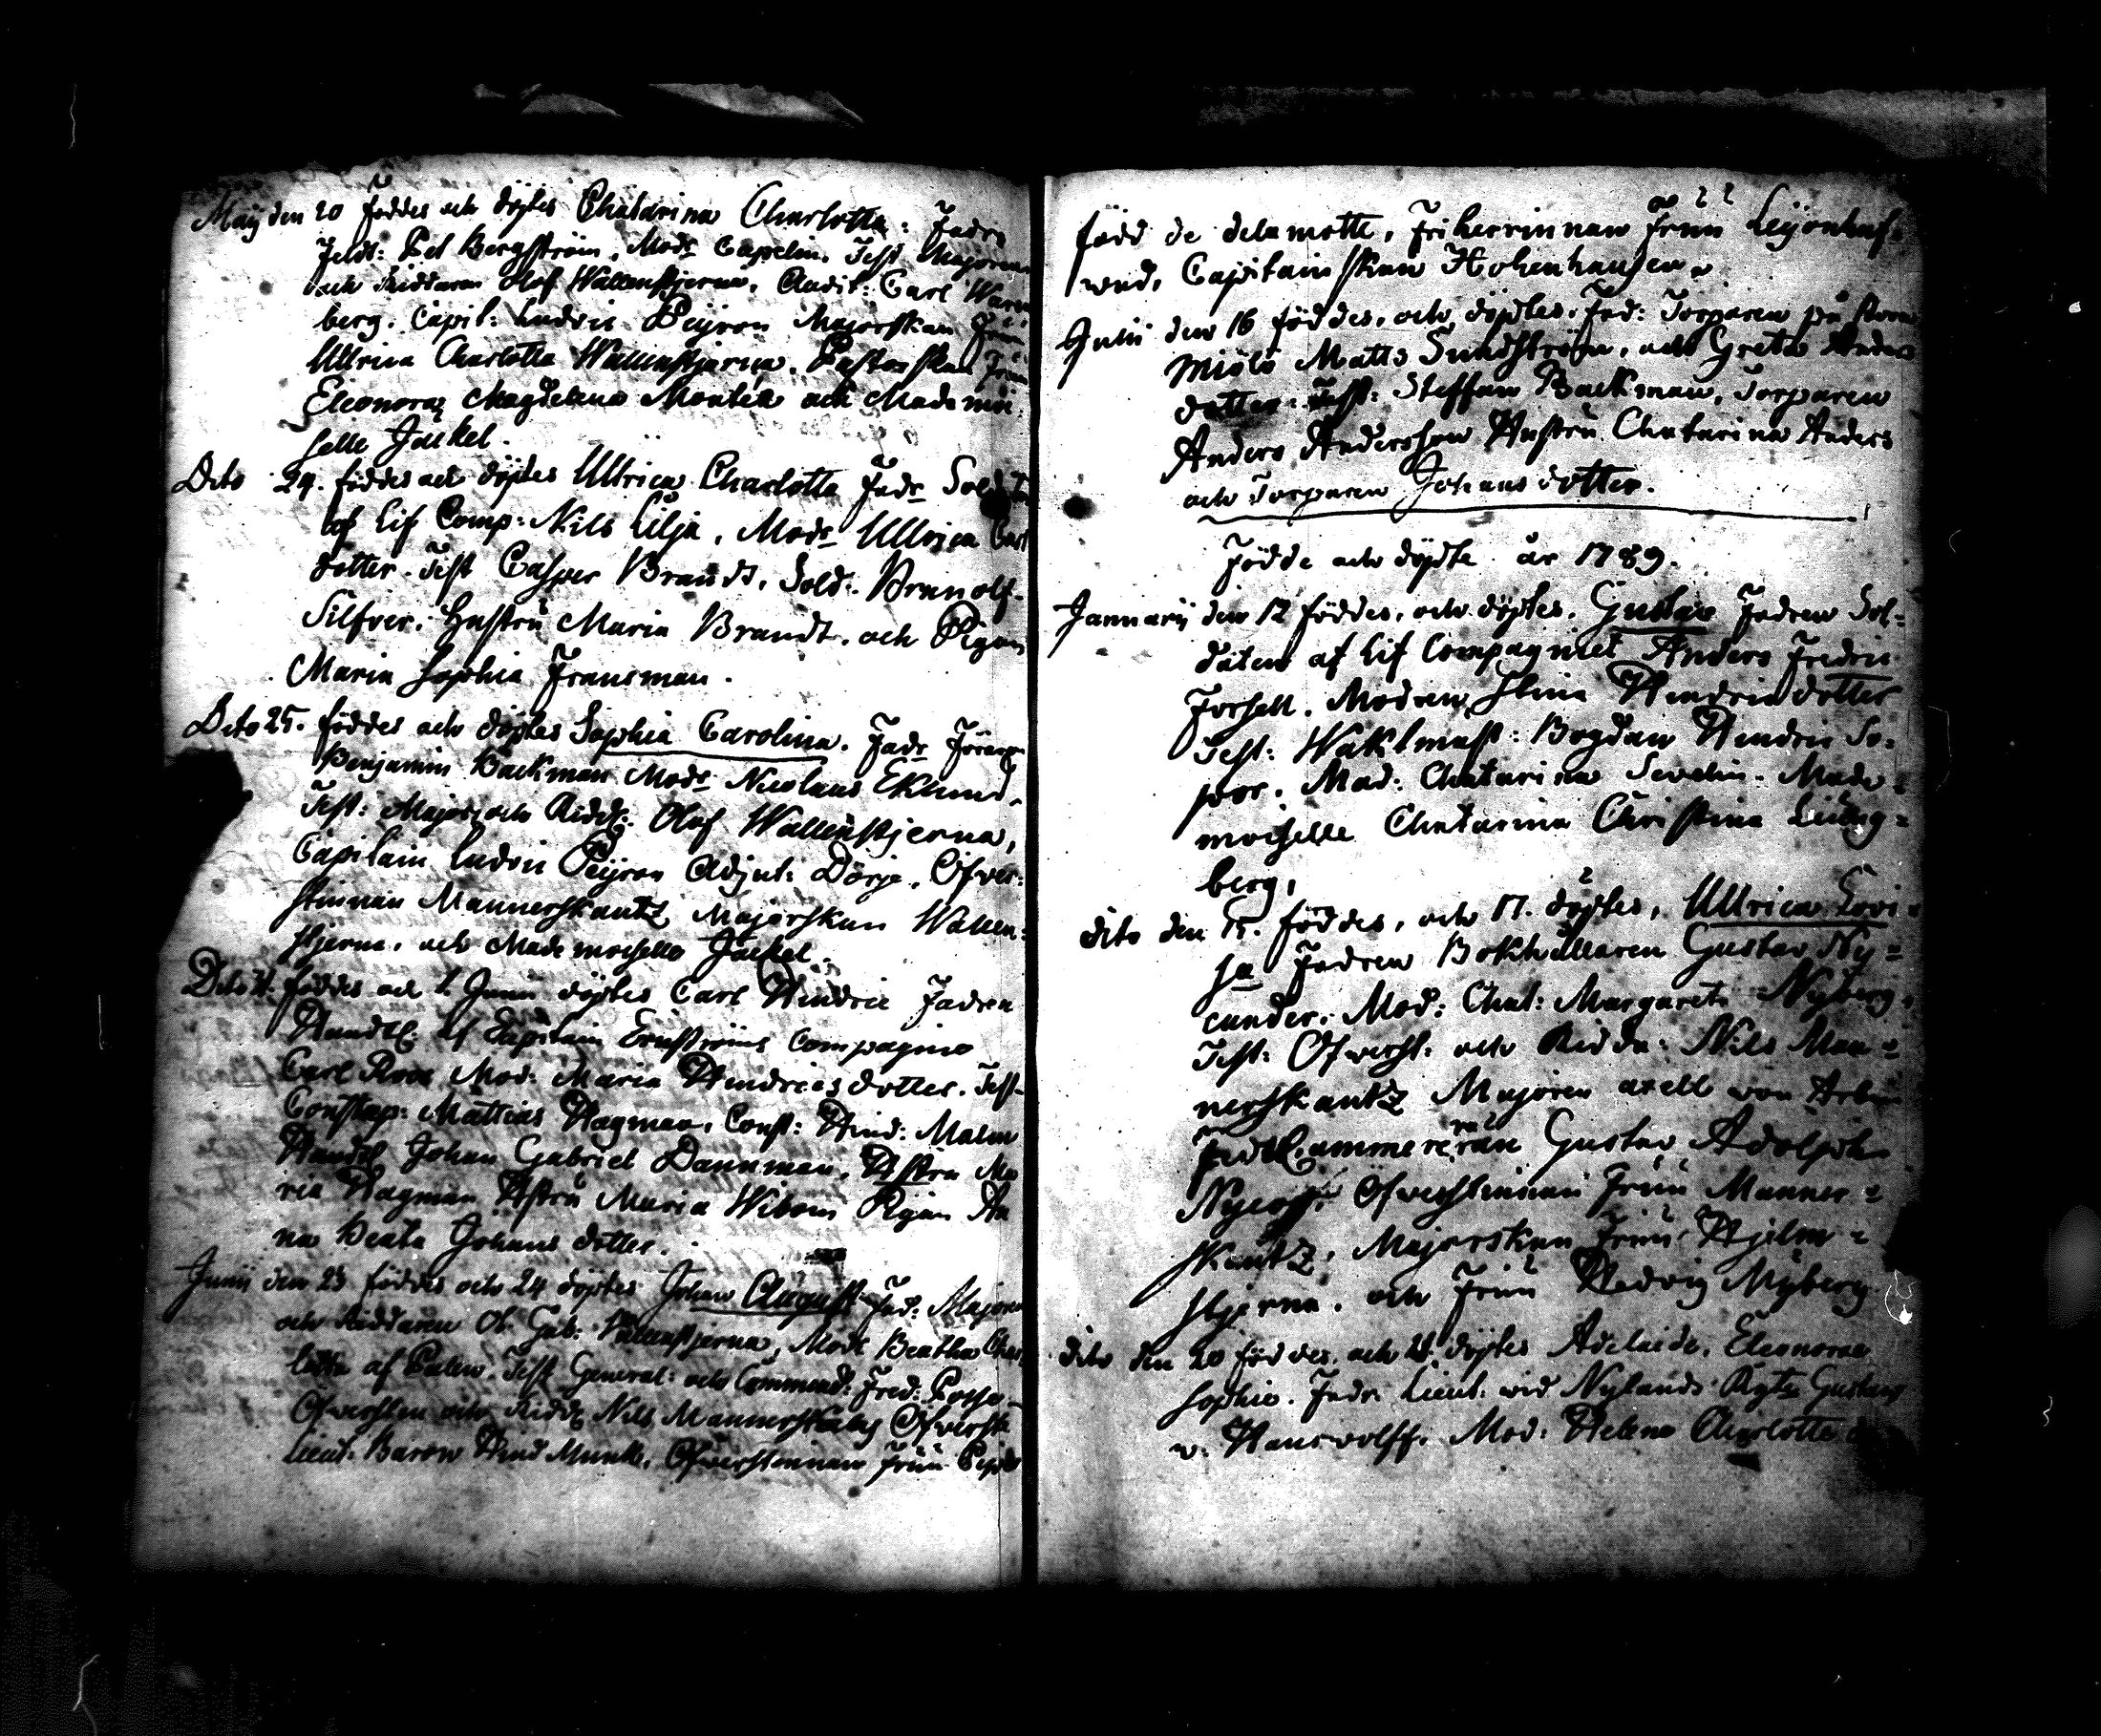 May den 20 föddes och döptes Chatarina Charlotta: Fadr
Feldt: Pet Bergström, Modr Capelin. Test Majoren
och Riddaren Olof Wallenstjerna, Audit: Carl Waren
berg. Capit: Ludvic Peyron Majorskan Fru
Ullrica Charlotta Wallenstjerna. Pastorskan Fru
Eleonora Magdelena Montell och Mademoi
selle Jäckel.
Dito 24. föddes och döptes Ullrica Charlotta Fadr Soldaten
af Lif Comp: Nils Lilja, Modr Ullrica Carl
dotter. Test Casper Brandt, Sold: Brunolf
Silfver. Hustru Maria Brandt, och Pigan
Maria Sophia Fransman.
Dito 25. föddes och döptes Sophia Carolina. Fadr
Benjamin Backman Modr Nicolaus Eklund,
Test: Major och Ridd: Olof Wallenstjerna,
Capitain Ludvic Peyron Adjut: Dörje, Ofver:
stinnan Mannerskantz Majorskan Wallen:
stjerna, och Mademoiselle Jäckel.
Dito 31. föddes och 1 Junii döptes Carl Hindric Fadren
af Capitain Compagnie
Carl Roos Mod: Maria Hindricsdotter. Test
Constap: Mattias Hagman, Const: Hind: Malm
Johan Gabriel Dannman, Hstru Ma
ria Hagman Hstru Maria Wibom Pigan An
na Beata Johansdotter.
Junii den 23 föddes och 24 döptes Johan August Fad: Majoren
och Riddaren Ol Gab: Wallenstjerna, Modr Beatha Char
lotta af Palen. Test General: och Commend: Fred: Posse
Ofversten och Ridd Nils Mannerskantz Ofverst
Lieut. Baron Hind Munck, Ofverstinnan Fru
född de delamotte, Friherrinnan Fru Leyonhuf-
wud, Capitainskan Hohenhausen
Julii den 16 föddes, och döptes. Fad: Torparen på
Miölö Matts Sundström, och Greta Anders
dotter. Test: Steffan Backman, Torparen
Anders Andersson Hustru Chatarina Anders
och Torparen Johansdotter.
Födde och döpte år 1789.
Januarii den 12 föddes, och döptes. Gustav Fadren Sol=
daten af Lif Compagniet Anders Fredric
Forsell. Modren, Stina Hindricsdotter
Test: Waktmast: Bogdan Hindric So=
por. Mad: Chatarina Sevelin. Made=
moiselle Chatarina Christina Liung=
berg,
dito den 15. föddes, och 17. döptes, Ullrica Lovi=
sa Fadren Bokhållaren Gustav Ny=
cander. Mod: Chat: Margaret: Nyberg,
Test: Ofverst: och Ridda: Nils Man=
nerskantz Majoren axell von Arbin
Cammereraren Gustav Adolph
Ofverstinnan Fru Manner=
skantz, Majorskan Fru Hjelm=
stjerna. och Fru Hedvig Nyberg
dito den 20 föddes. och 21. döptes Adelaide, Eleonora
Sophie. Fadr: Lieut: wid Nylands Rgte Gustav
v: Hauswolff. Mod: Helena Charlotte